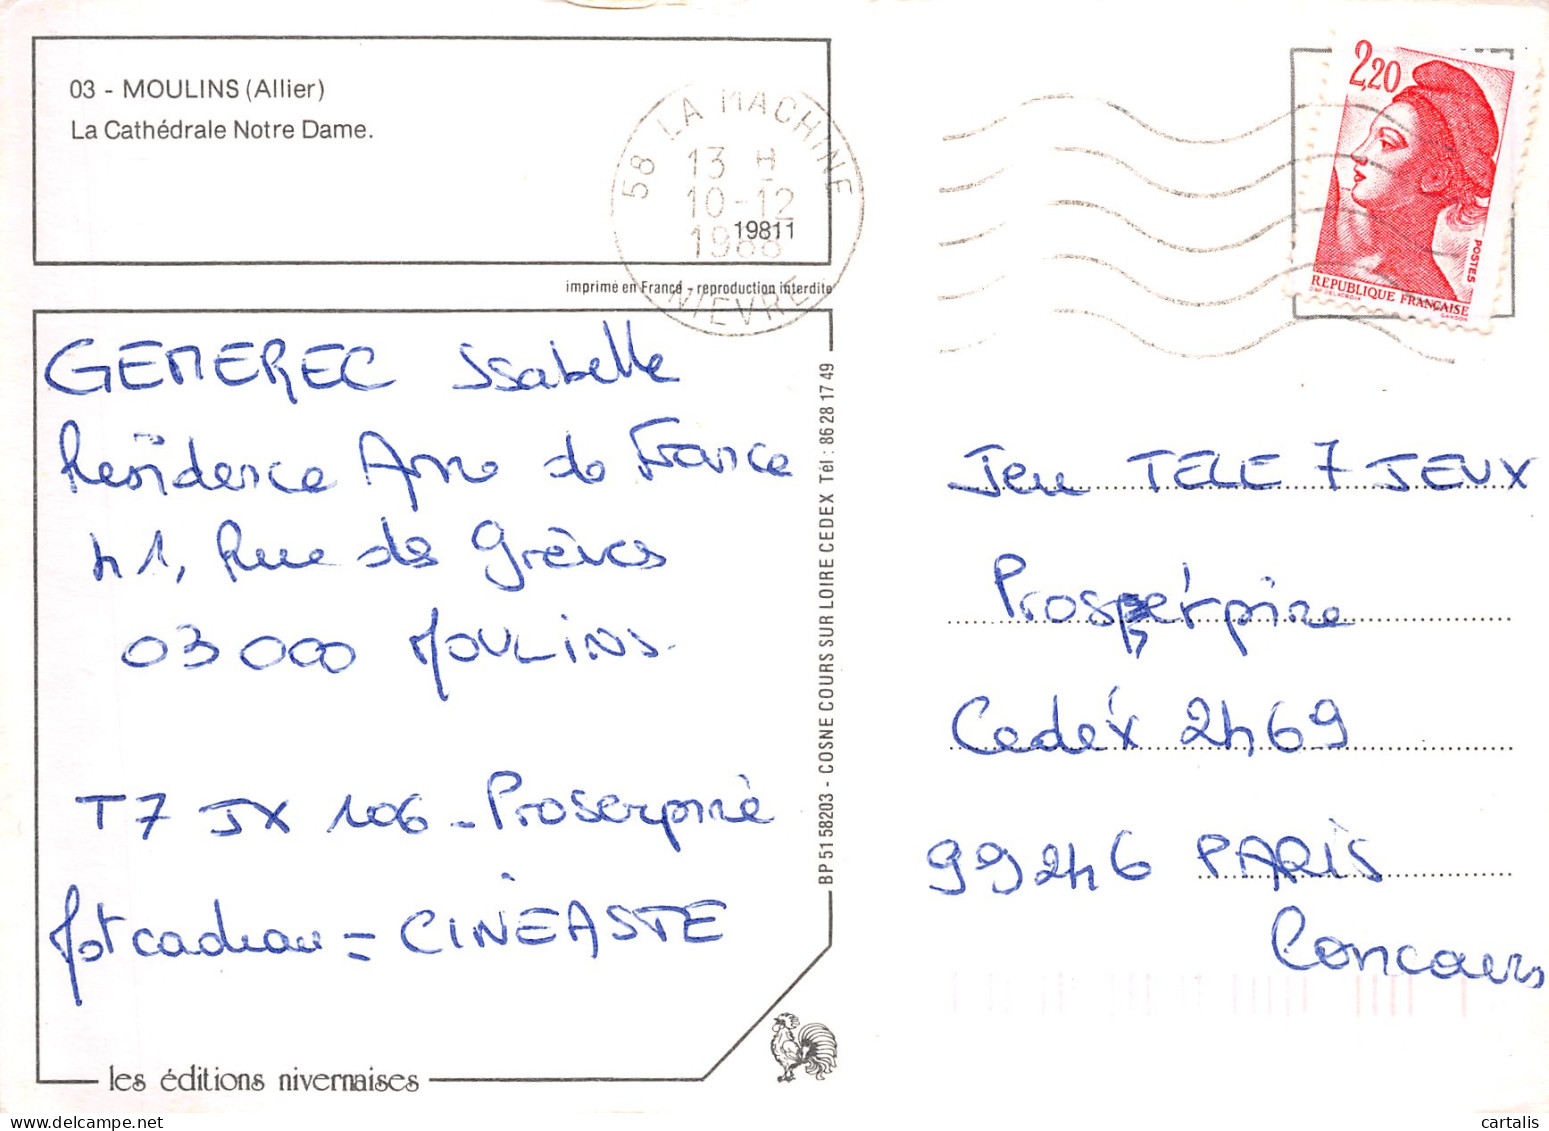 03 - MOULINS (Allier)
La Cathédrale Notre Dame.
19811
58 LA MACHINE
13 H
10-12
1988
NIEVRE
imprimé en France - reproduction interdite
2,20
POSTES
REPUBLIQUE FRANÇAISE
GANDON
GEMEREC Isabelle
Résidence Anne de France
41, Rue des Grèves
03000 MOULINS
T7 JX 106 - Proserpine
Mot cadeau = CINÉASTE
BP 51 58203 - COSNE COURS SUR LOIRE CEDEX Tél : 86 28 17 49
les éditions nivernaises
Jeu TELE 7 JEUX
Proserpine
Cedex 2469
99246 PARIS
Concours
cartalis